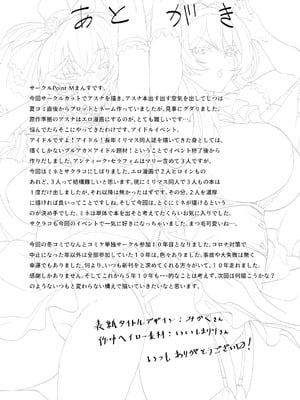 あとがき
サークルPoint Mまんすです。
今回サークルカットでアスナを描き、アスナ本出す出す空気を出してじつは
夏コミ直後からプロットとネーム作っていましたが、見事にグダりました。
原作準拠のアスナはエロ漫画にするのが、とても難しいです…。
悩んでたらそこにやってきたわけです、アイドルイベント。
アイドルですよ！アイドル！長年ミリマス同人誌を描いてきた身としては、
描くしかないブルアカ×アイドル題材！ということでイベント終了後から
作りだしました。アンティーク・セラフィムはマリー含めて3人ですが、
今回はミネとサクラコにしぼりました。エロ漫画で2人ヒロインもの
あれど、3人って結構難しいと思います。現にミリマス同人で3人もの本は
1度だけ出しましたが、それ以後は無かったはずです。その分、2人を濃厚
に描ければ良いってことですしね。そして今回は、とくにミネが描けるという
のが決め手でした、ミネは単体で本を出そと考えてたくらいお気に入りでした。
サクラコも今回のイベントで一気に好きになっちゃいました。まつ毛可愛いね…。
今回の冬コミでなんとコミケ単独サークル参加10年目となりました。コロナ対策で
中止になった年以外は全部参加していた10年は、色々ありました。事故や大失敗は無く
幸運でもありました。何より、いつも新刊を求めてくれる方々がいて、10年走れました。
感謝しかありません。そしてこれから5年10年も…的なことは考えず、次回は何描こうかな？
のようないつもと変わらない構えで描いていきたいなと思います。
表紙タイトルデザイン：みかくさん
いつもありがとうございます！